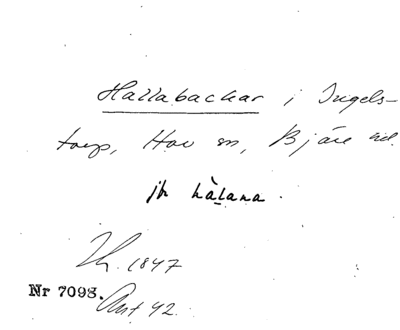 Hallabackar i Ingels-
torp, Hov sn, Bjäre hd.
jfr hàlana.
Th. 1847
Nr 7098. Ant 42.